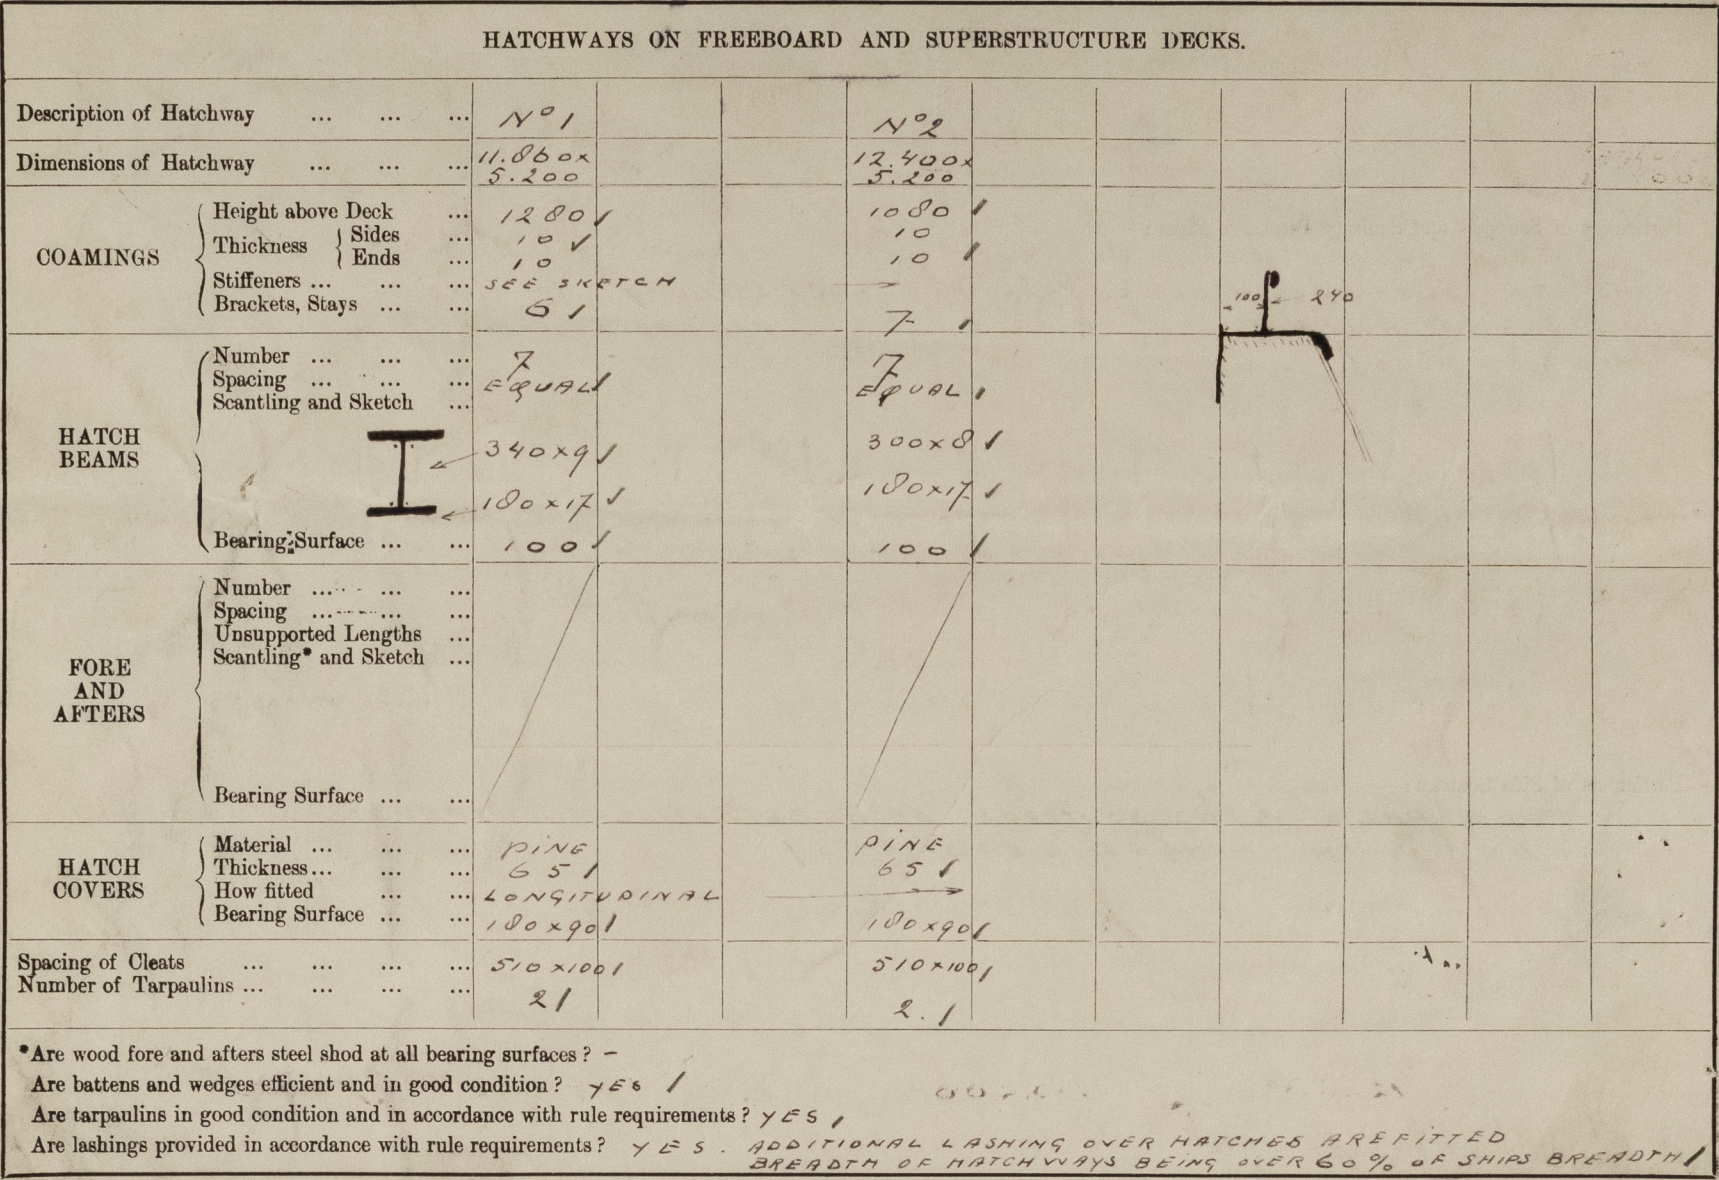 HATCHWAYS ON FREEBOARD AND SUPERSTRUCTURE DECKS.
Description of Hatchway ... ... ... Nº 1 Nº 2
Dimensions of Hatchway ... ... ... 11.860x 12.400x
5.200 5.200
COAMINGS
Height above Deck ... 1280 1080
Thickness Sides ... 10 10
Ends ... 10 10
Stiffeners ... ... ... SEE SKETCH
Brackets, Stays ... ... 6 7
100 240
HATCH BEAMS
Number ... ... ... 7 7
Spacing ... ... ... EQUAL EQUAL
Scantling and Sketch ...
340x9 300x8
180x17 180x17
Bearing Surface ... ... 100 100
FORE AND AFTERS
Number ... ... ...
Spacing ... ... ...
Unsupported Lengths ...
Scantling* and Sketch ...
Bearing Surface ... ...
HATCH COVERS
Material ... ... ... PINE PINE
Thickness... ... ... 65 65
How fitted ... ... LONGITUDINAL
Bearing Surface ... ... 180x90 180x90
Spacing of Cleats ... ... ... ... 510x100 510x100
Number of Tarpaulins ... ... ... ... 2 2.
*Are wood fore and afters steel shod at all bearing surfaces? –
Are battens and wedges efficient and in good condition? YES
Are tarpaulins in good condition and in accordance with rule requirements? YES
Are lashings provided in accordance with rule requirements? YES. ADDITIONAL LASHING OVER HATCHES ARE FITTED
BREADTH OF HATCHWAYS BEING OVER 60% OF SHIPS BREADTH